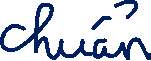 chuẩn